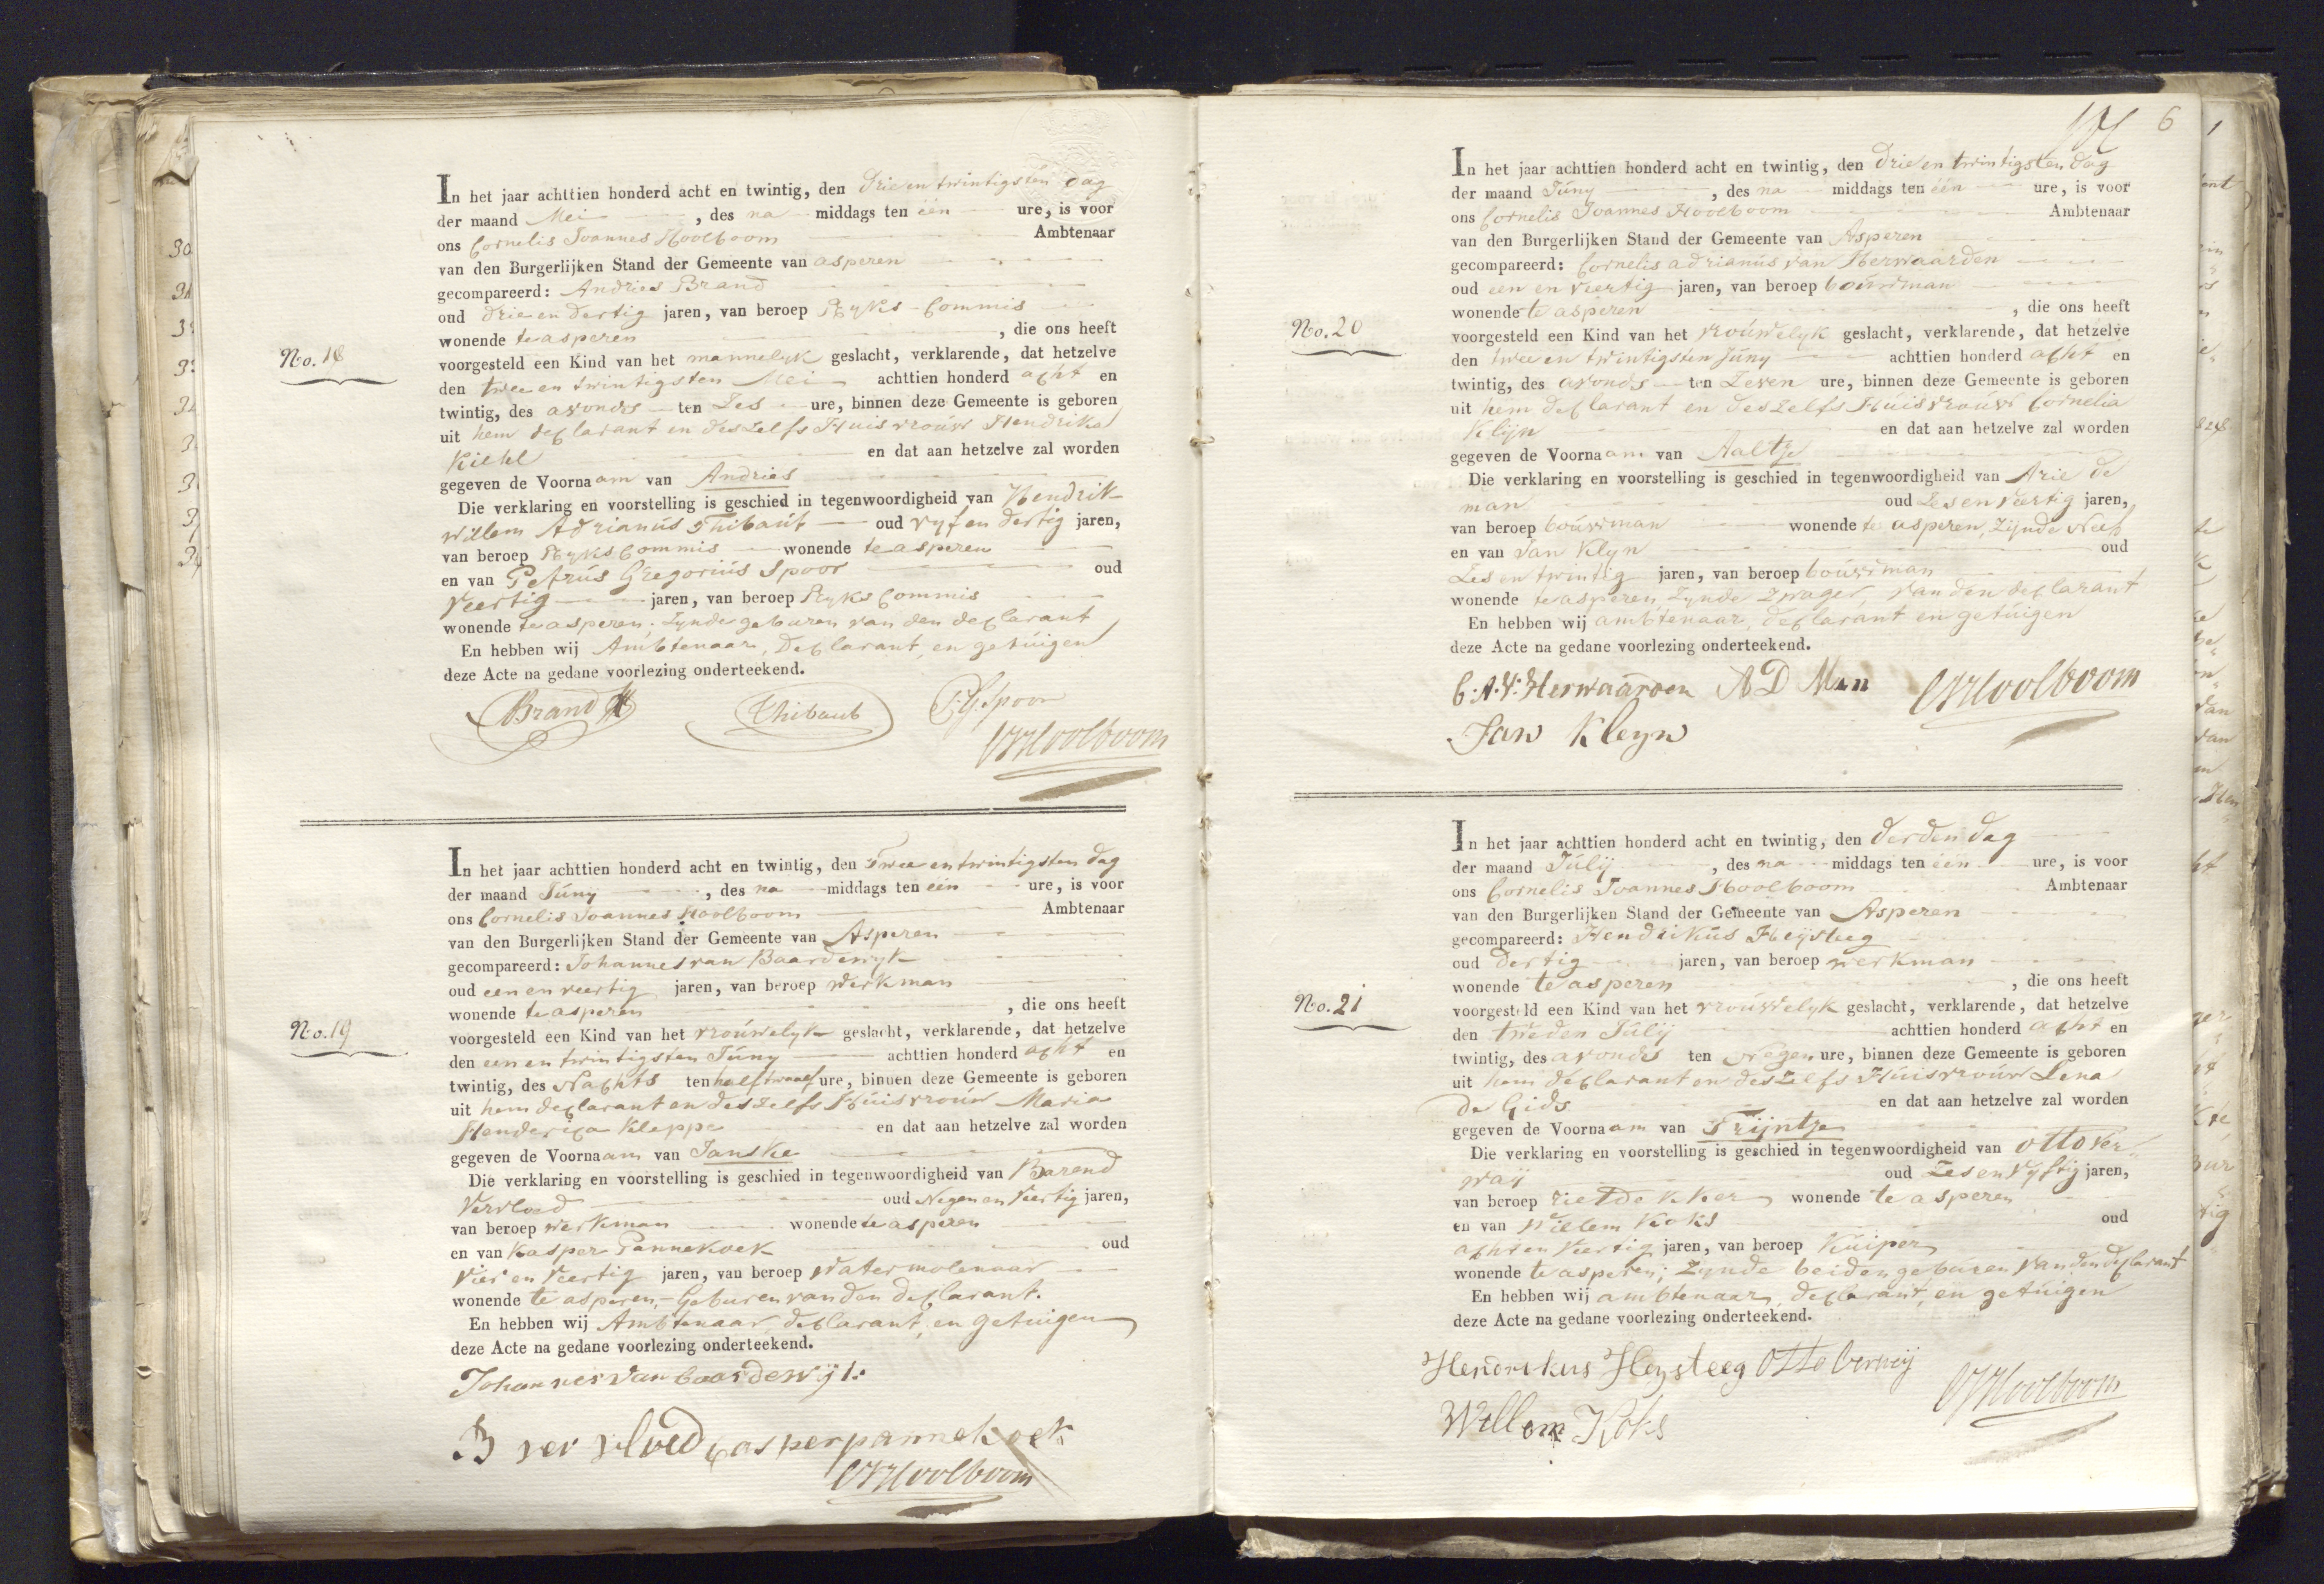 No. 18
In het jaar achttien honderd acht en twintig, den drie en twintigsten dag
der maand Mei , des na middags ten één ure, is voor
ons Cornelis Joannes Hoolboom Ambtenaar
van den Burgerlijken Stand der Gemeente van asperen
gecompareerd: Andries Brand
oud drie en dertig jaren, van beroep Ryks Commis
wonende te asperen , die ons heeft
voorgesteld een Kind van het mannelyk geslacht, verklarende, dat hetzelve
den twee en twintigsten Mei achttien honderd acht en
twintig, des avonds ten Zes ure, binnen deze Gemeente is geboren
uit hem declarant en deszelfs Huisvroúw Hendrika
Kiehl en dat aan hetzelve zal worden
gegeven de Voornaam van Andries
Die verklaring en voorstelling is geschied in tegenwoordigheid van Hendrik
Willem Adrianús Thibaút oud vyf en dertig jaren,
van beroep Ryks Commis wonende te asperen
en van Petrús Gregoriús Spoor oud
Veertig jaren, van beroep Ryks Commis
wonende te asperen, Zynde geburen van den declarant
En hebben wij Ambtenaar, Declarant, en getúigen
deze Acte na gedane voorlezing onderteekend.
Brand
Thibaut
P.G. Spoor
CJHoolboom
No. 19
In het jaar achttien honderd acht en twintig, den Twee en twintigsten dag
der maand Júny , des na middags ten één ure, is voor
ons Cornelis Joannes Hoolboom Ambtenaar
van den Burgerlijken Stand der Gemeente van Asperen
gecompareerd: Johannes van Baardewyk
oud een en veertig jaren, van beroep werkman
wonende te asperen , die ons heeft
voorgesteld een Kind van het vroúwelyk geslacht, verklarende, dat hetzelve
den een en twintigsten Júny achttien honderd acht en
twintig, des Nachts ten half twaalf ure, binnen deze Gemeente is geboren
uit hem declarant en deszelfs Húisvroúw Maria
Henderica Kleppe en dat aan hetzelve zal worden
gegeven de Voornaam van Janske
Die verklaring en voorstelling is geschied in tegenwoordigheid van Barend
Vervloed oud Negen en Veertig jaren,
van beroep werkman wonende te asperen
en van Kasper Pannekoek oud
Vier en Veertig jaren, van beroep Watermolenaar
wonende te asperen, - Geburen van den declarant.
En hebben wij Ambtenaar, declarant, en getuigen
deze Acte na gedane voorlezing onderteekend.
Johannes van baardewijk
B ver vloed casper pannekoek
CJHoolboom
6
No. 20
In het jaar achttien honderd acht en twintig, den drie en twintigsten dag
der maand Júny , des na middags ten één ure, is voor
ons Cornelis Joannes Hoolboom Ambtenaar
van den Burgerlijken Stand der Gemeente van Asperen
gecompareerd: Cornelis adrianús van Herwaarden
oud een en veertig jaren, van beroep boúwman
wonende te asperen , die ons heeft
voorgesteld een Kind van het vroúwelyk geslacht, verklarende, dat hetzelve
den twee en twintigsten júny achttien honderd acht en
twintig, des avonds ten Zeven ure, binnen deze Gemeente is geboren
uit hem declarant en deszelfs Húisvroúw Cornelia
Klijn en dat aan hetzelve zal worden
gegeven de Voornaam van Aaltje
Die verklaring en voorstelling is geschied in tegenwoordigheid van Arie de
man oud Zes en veertig jaren,
van beroep boúwman wonende te asperen, Zijnde Neef
en van Jan Klyn oud
Zes en twintig jaren, van beroep boúwman
wonende te asperen, Zynde Zwager, van den declarant
En hebben wij ambtenaar, declarant en getúigen
deze Acte na gedane voorlezing onderteekend.
C.A.V. Herwaarden A D Man CJHoolboom
Jan Kleyn
No. 21
In het jaar achttien honderd acht en twintig, den derden dag
der maand Júlij , des na middags ten één ure, is voor
ons Cornelis Joannes Hoolboom Ambtenaar
van den Burgerlijken Stand der Gemeente van Asperen
gecompareerd: Hendrikús Heijsteeg
oud dertig jaren, van beroep werkman
wonende te asperen , die ons heeft
voorgesteld een Kind van het vroúwelyk geslacht, verklarende, dat hetzelve
den tweden Júlij achttien honderd acht en
twintig, des avonds ten Negen ure, binnen deze Gemeente is geboren
uit hem declarant en deszelfs Húisvroúw Lena
de Gids en dat aan hetzelve zal worden
gegeven de Voornaam van Trijntje
Die verklaring en voorstelling is geschied in tegenwoordigheid van otto Ver
waij oud Zes en Vyftig jaren,
van beroep rietdekker wonende te asperen
en van Willem Koks oud
acht en Veertig jaren, van beroep Kúiper
wonende te asperen; Zynde beiden geburen van den declarant
En hebben wij ambtenaar, declarant, en getúigen
deze Acte na gedane voorlezing onderteekend.
Hendrikus Heysteeg Otto Verweij
CJHoolboom
Willem Koks